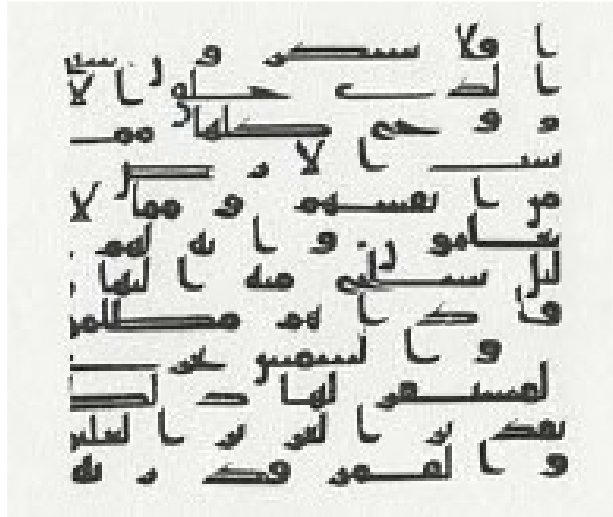 ا فلا يشكر و ن سبحں
ا لذ ى خلق ا لا ز
و ج كلها مما
تنبت ا لا ر ض
من ا نفسهم و مما لا
يعلمو ن و ا ية لهم ا
ليل نسلخ منه ا لنها ر
فا ذ ا هم مظلمو ن
و ا لشمس تجر ى
لمستقر لها ذ لك
تقد ير ا لعز يز ا لعليم
و ا لقمر قد ر نه